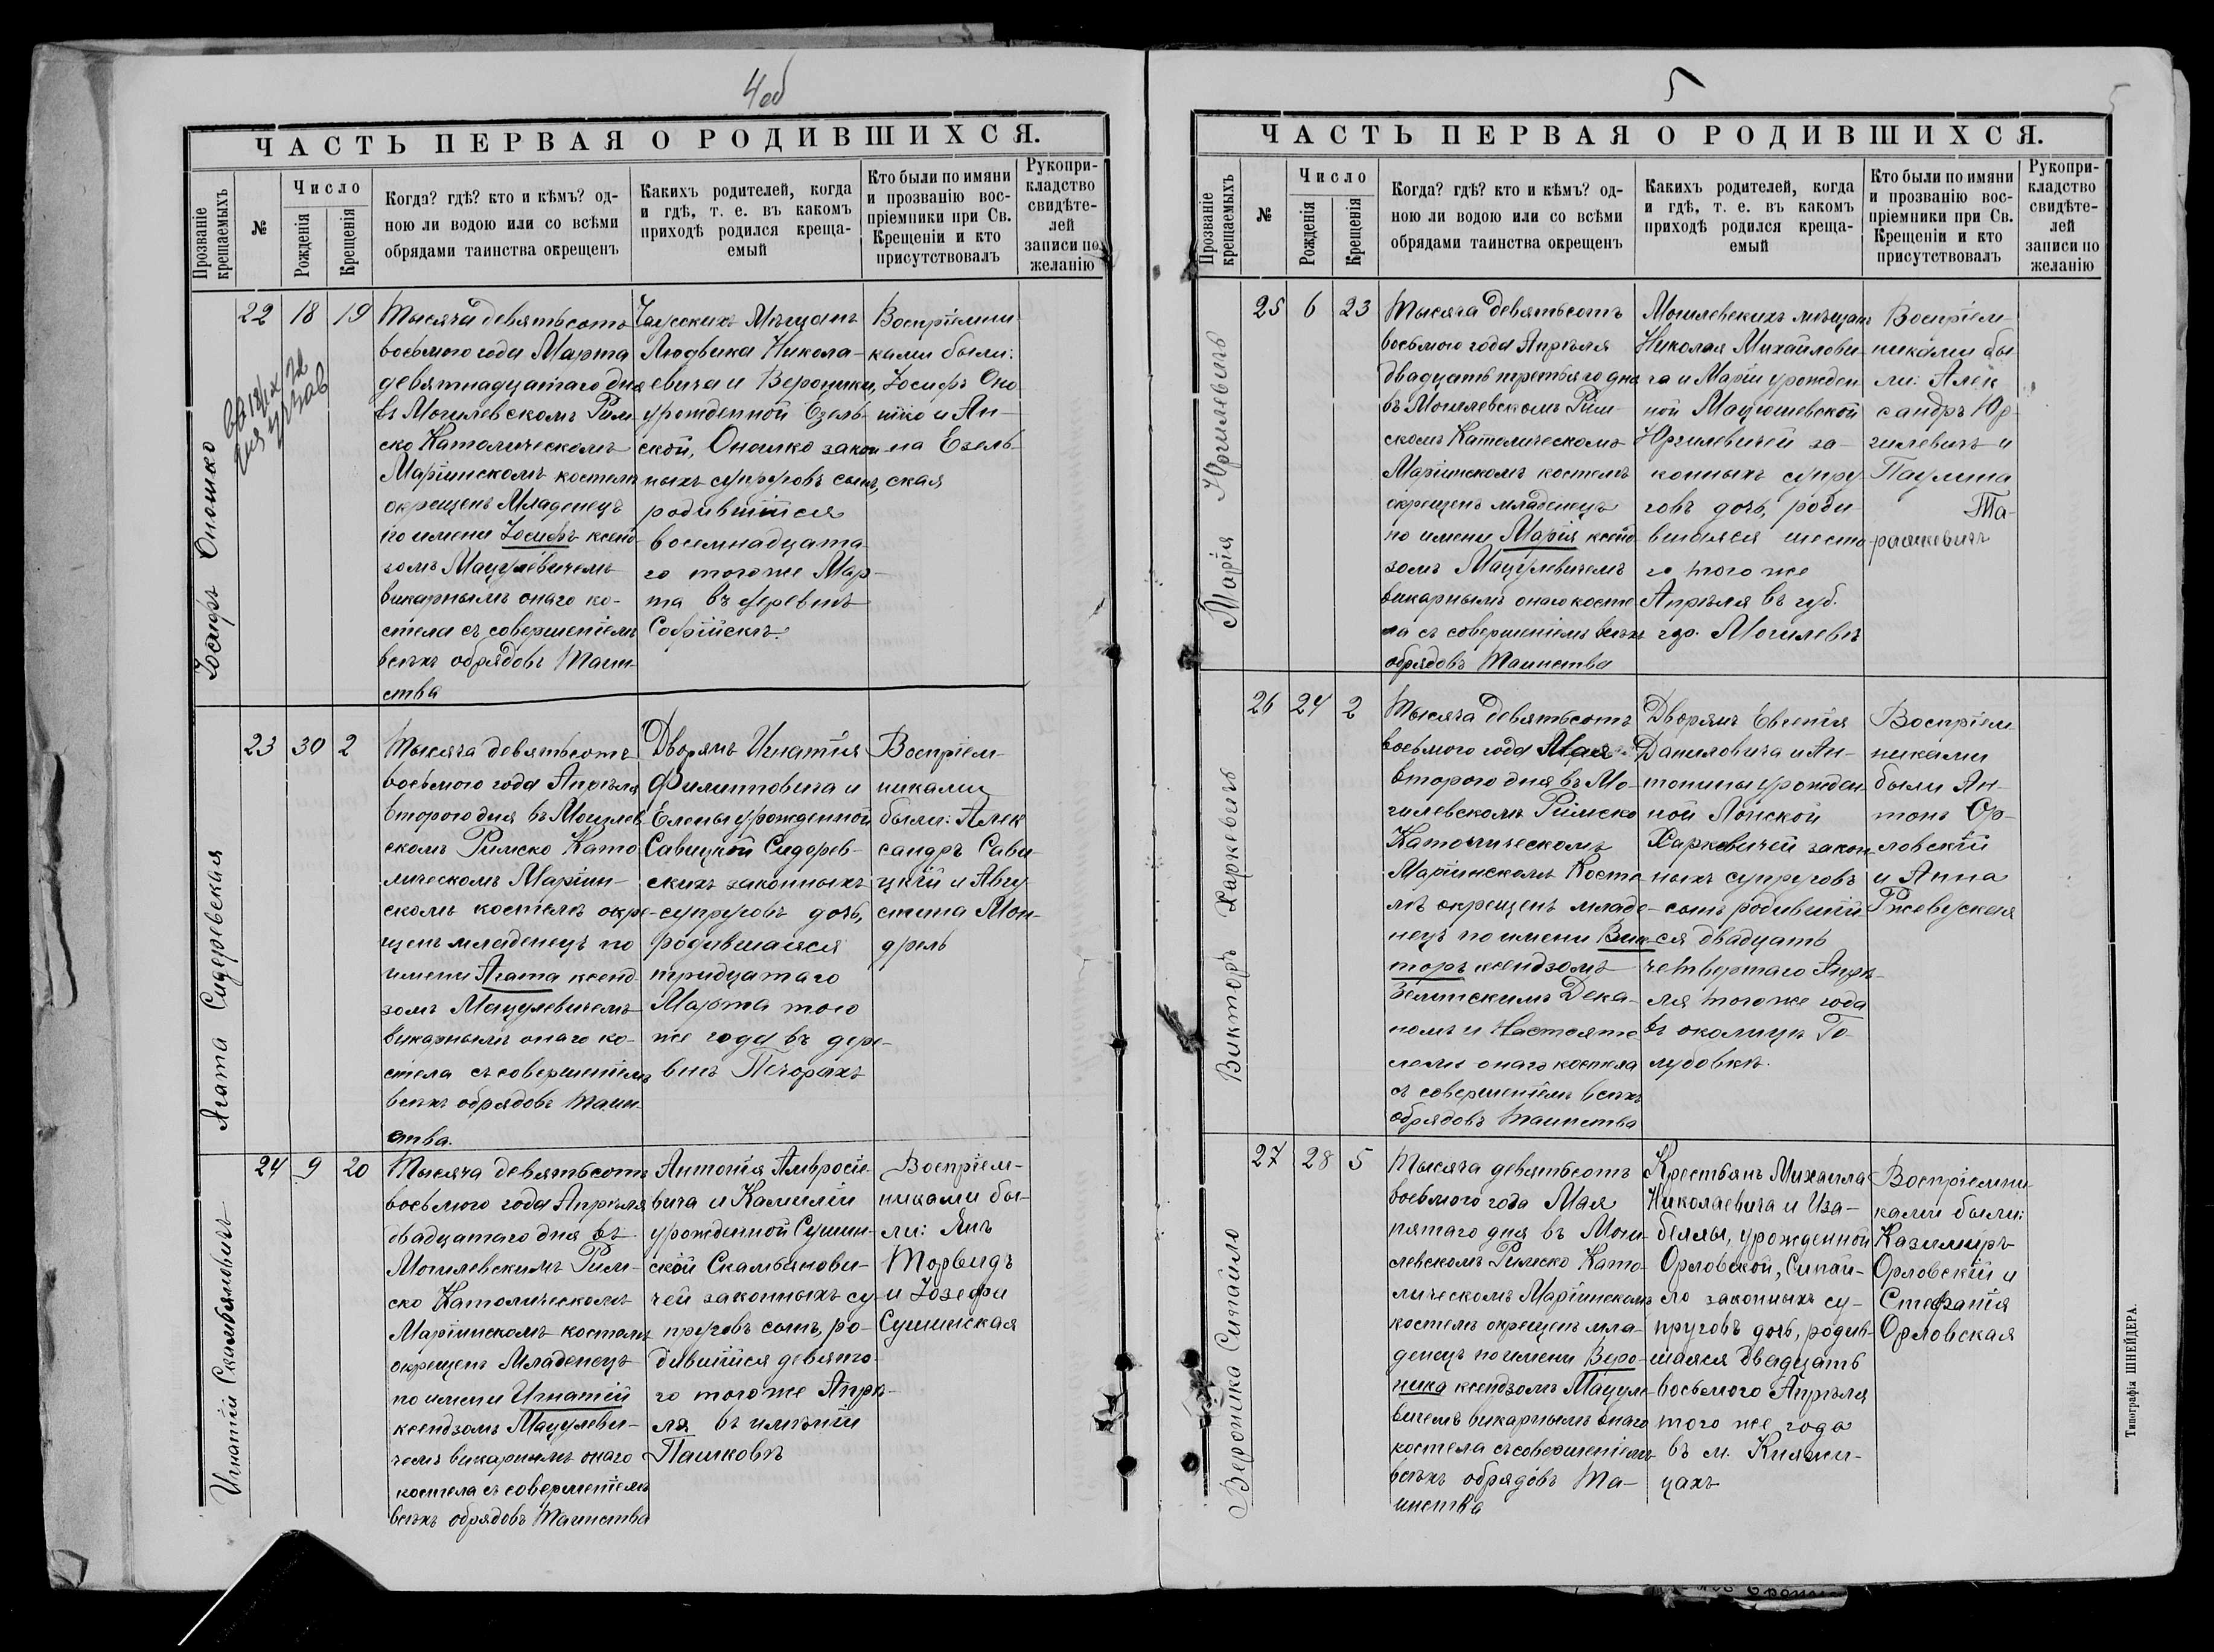 4об
ЧАСТЬ ПЕРВАЯ О РОДИВШИХСЯ.
Прозваніе крещаемыхъ
№
Число
Рожденія
Крещенія
Когда? гдѣ? кто и кѣмъ? од-
ною ли водою или со всѣми
обрядами таинства окрещенъ
Какихъ родителей, когда
и гдѣ, т. е. въ какомъ
приходѣ родился креща-
емый
Кто были по имяни
и прозванію вос-
пріемники при Св.
Крещеніи и кто
присутствовалъ
Рукопри-
кладство
свидѣте-
лей
записи по
желанію
Іосифъ Оношко
22 18 19
Тысяча девятьсотъ
восьмого года Марта
девятнадцатаго дня
въ Могилевскомъ Рим-
ско Католическомъ
Маріинскомъ костелѣ
окрещенъ Младенецъ
по имени Іосифъ ксенд-
зомъ Мацулевичемъ
викарнымъ онаго ко-
стела съ совершеніемъ
всѣхъ обрядовъ Таин-
ства
Чаусскихъ Мѣщанъ
Людвика Никола-
евича и Вероники,
урожденной Езель-
ской, Оношко закон-
ныхъ супруговъ сынъ,
родившійся
восемнадцата-
го тогоже Мар-
та въ деревнѣ
Софійскъ.
Воспріемни-
ками были:
Іосифъ Оно-
шко и Ан-
на Езель-
ская
Агата Сидеревская
23 30 2
Тысяча девятьсотъ
восьмого года Апрѣля
второго дня въ Могилев-
скомъ Римско Като-
лическомъ Маріин-
скомъ костелѣ окре-
щенъ младенецъ по
имени Агата ксенд-
зомъ Мацулевичемъ
викарнымъ онаго ко-
стела съ совершеніемъ
всѣхъ обрядовъ Таин-
ства.
Дворянъ Игнатія
Филипповича и
Елены урожденной
Савицкой Сидерев-
скихъ законныхъ
супруговъ дочь,
родившаяся
тридцатаго
Марта того
же года въ дере-
внѣ Печорахъ
Воспріем-
никами
были: Алек-
сандръ Сави-
цкій и Авгу-
стина Мон-
дрель
Игнатій Скамбяновичъ
24 9 20
Тысяча девятьсотъ
восьмого года Апрѣля
двадцатаго дня въ
Могилевскимъ Рим-
ско Католическомъ
Маріинскомъ костелѣ
окрещенъ Младенецъ
по имени Игнатій
ксендзомъ Мацулеви-
чемъ викарнымъ онаго
костела съ совершеніемъ
всѣхъ обрядовъ Таинства
Антонія Амвросіе-
вича и Камиліи
урожденной Сушин-
ской Скамбянови-
чей законныхъ су-
пруговъ сынъ, ро-
дившійся девято-
го тогоже Апрѣ-
ля въ имѣніи
Пашковѣ
Воспріем-
никами бы-
ли: Янъ
Торвидъ
и Іозефа
Сушинская
5
ЧАСТЬ ПЕРВАЯ О РОДИВШИХСЯ.
Прозваніе крещаемыхъ
№
Число
Рожденія
Крещенія
Когда? гдѣ? кто и кѣмъ? од-
ною ли водою или со всѣми
обрядами таинства окрещенъ
Какихъ родителей, когда
и гдѣ, т. е. въ какомъ
приходѣ родился креща-
емый
Кто были по имяни
и прозванію вос-
пріемники при Св.
Крещеніи и кто
присутствовалъ
Рукопри-
кладство
свидѣте-
лей
записи по
желанію
Марія Юргилевичъ
25 6 23
Тысяча девятьсотъ
восьмого года Апрѣля
двадцать третьяго дня
въ Могилевскомъ Рим-
скомъ Католическомъ
Маріинскомъ костелѣ
окрещенъ младенецъ
по имени Марія ксенд-
зомъ Мацулевичемъ
викарнымъ онаго косте-
ла съ совершеніемъ всѣхъ
обрядовъ Таинства
Могилевскихъ мѣщанъ
Николая Михайлови-
ча и Маріи урожден-
ной Мацюшевской
Юргилевичей за-
конныхъ супру-
говъ дочь, роди-
вшаяся шесто-
го того же
Апрѣля въ губ.
гор. Могилевѣ
Воспріем-
никами бы-
ли: Алек-
сандръ Юр-
гилевичъ и
Паулина
Та-
рашкевичъ
Викторъ Харкевичъ
26 24 2
Тысяча девятьсотъ
восьмого года Мая
второго дня въ Мо-
гилевскомъ Римско
Католическомъ
Маріинскомъ Косте-
лѣ окрещенъ младе-
нецъ по имени Вик-
торъ ксендзомъ
Зелинскимъ Дека-
номъ и Настояте-
лемъ онаго костела
съ совершеніемъ всѣхъ
обрядовъ Таинства
Дворянъ Евгенія
Даниловича и Ан-
тонины урожден-
ной Лонской
Харкевичей закон-
ныхъ супруговъ
сынъ родивший-
ся двадцать
четвертаго Апрѣ-
ля тогоже года
въ околицѣ Го-
лубовкѣ.
Воспріем-
никами
были Ан-
тонъ Ор-
ловскій
и Анна
Ржевуская
Вероника Сипайло
27 28 5
Тысяча девятьсотъ
восьмого года Мая
пятаго дня въ Моги-
левскомъ Римско Като-
лическомъ Маріинскомъ
костелѣ окрещенъ мла-
денецъ по имени Веро-
ника ксендзомъ Мацуле-
вичемъ викарнымъ онаго
костела съ совершеніемъ
всѣхъ обрядовъ Та-
инства
Крестьянъ Михаила
Николаевича и Иза-
беллы, урожденной
Орловской, Сипай-
ло законныхъ су-
пруговъ дочь, родив-
шаяся двадцать
восьмого Апрѣля
того же года
въ м. Княжи-
цахъ
Воспріемни-
ками были:
Казимиръ
Орловскій и
Стефанія
Орловская
Типографія ШНЕЙДЕРА.